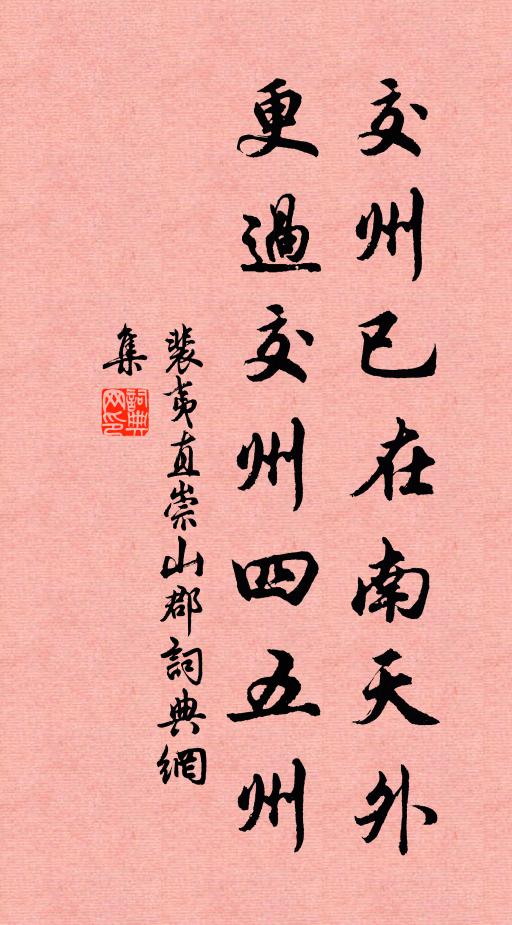 交州已在南天外
更過交州四五州
裴夷直崇山郡詞典網
集
詞典
网印